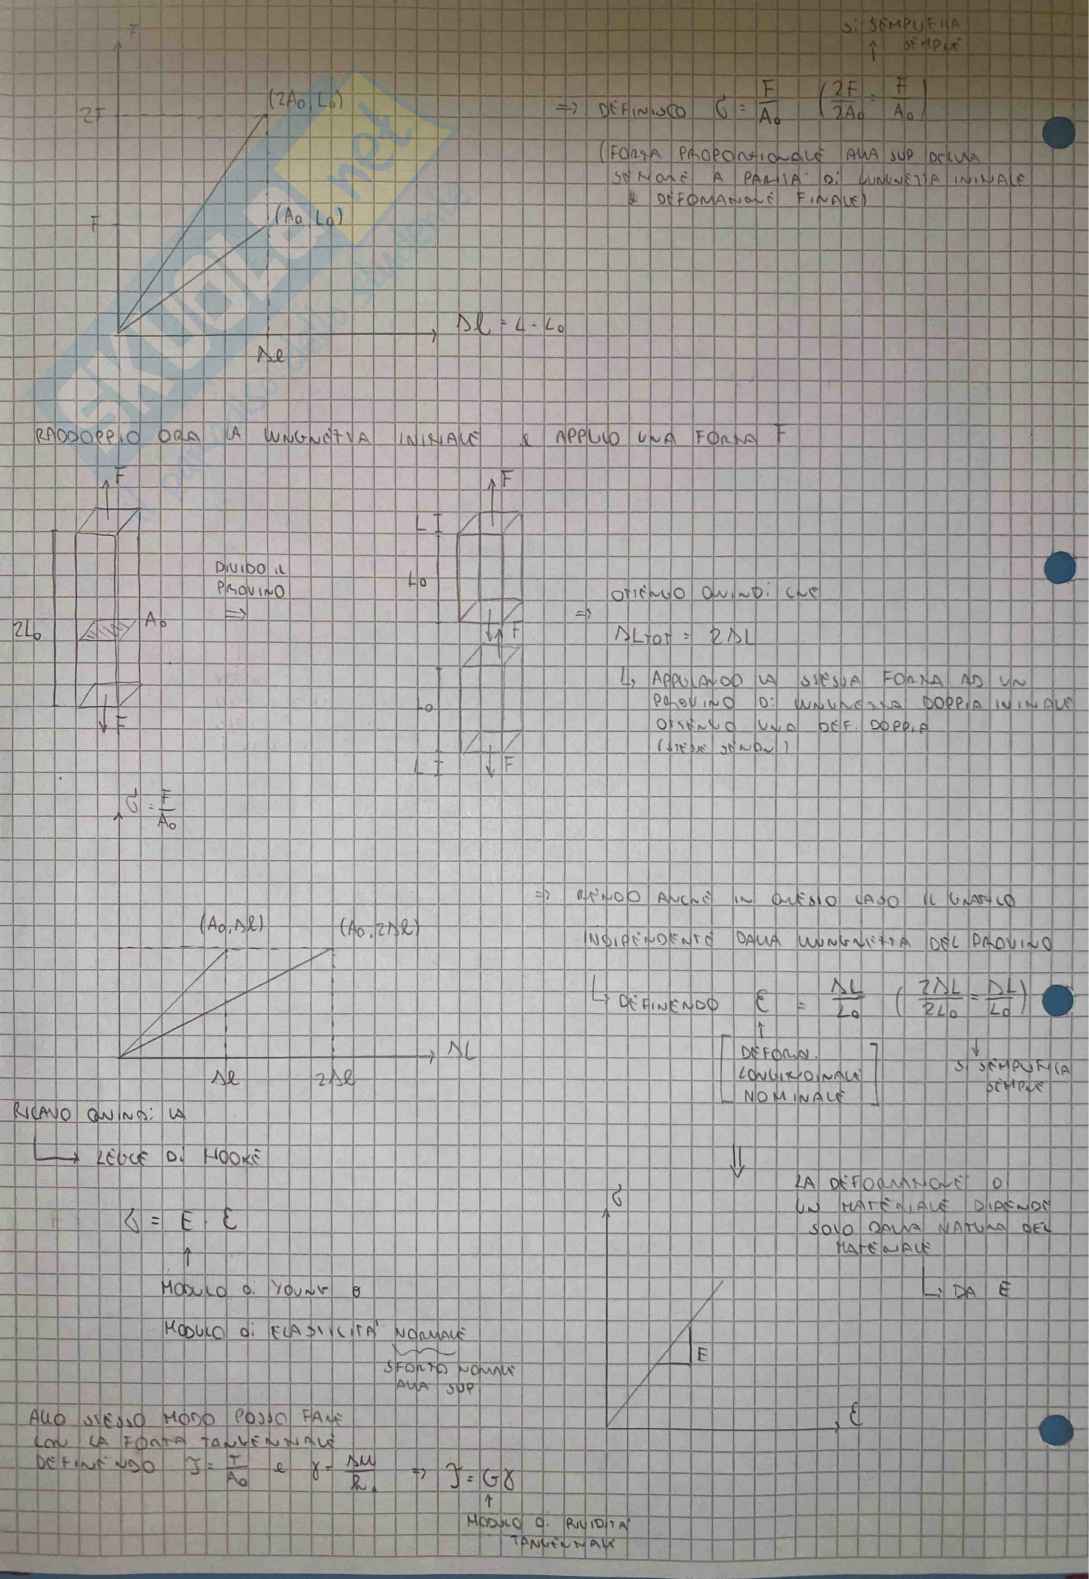 F
SI SEMPLIFICA
SEMPRE
2F
(2A₀, L₀)
⇒ DEFINISCO σ = F/A₀ (2F/2A₀ = F/A₀)
(FORZA PROPORZIONALE ALLA SUP DELLA
SEZIONE A PARITA' DI LUNGHEZZA INIZIALE
E DEFORMAZIONE FINALE)
F
(A₀, L₀)
Δl = L - L₀
Δl
SKUOLA.net
RADDOPPIO ORA LA LUNGHEZZA INIZIALE E APPLICO UNA FORZA F
F
F
L
DIVIDO IL
PROVINO
⇒
L₀
2L₀
A₀
F
F
⇒
OTTENGO QUINDI CHE
ΔLTOT = 2ΔL
↳ APPLICANDO LA STESSA FORZA AD UN
PROVINO DI LUNGHEZZA DOPPIA INIZIALE
OTTENGO UNA DEF. DOPPIA
L₀
L
F
σ = F/A₀
(A₀, Δl)
(A₀, 2Δl)
⇒ RENDO ANCHE IN QUESTO CASO IL GRAFICO
INDIPENDENTE DALLA LUNGHEZZA DEL PROVINO
↳ DEFINENDO ε = ΔL/L₀ (2ΔL/2L₀ = ΔL/L₀)
DEFORM.
LONGITUDINALE
NOMINALE
SI SEMPLIFICA
SEMPRE
ΔL
Δl
2Δl
RICAVO QUINDI LA
LEGGE DI HOOKE
σ = E · ε
MODULO DI YOUNG O
MODULO DI ELASTICITA' NORMALE
SFORZO NORMALE
ALLA SUP
LA DEFORMAZIONE DI
UN MATERIALE DIPENDE
SOLO DALLA NATURA DEL
MATERIALE
↳ DA E
σ
E
ε
ALLO STESSO MODO POSSO FARE
CON LA FORZA TANGENZIALE
DEFINENDO τ = T/A₀ e γ = Δu/h ⇒ τ = Gγ
MODULO DI RIGIDITA'
TANGENZIALE